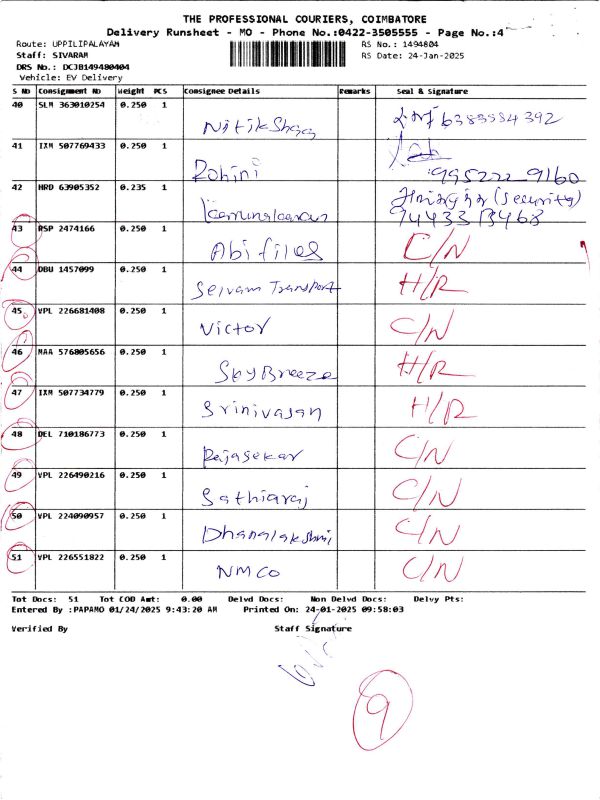 THE PROFESSIONAL COURIERS, COIMBATORE
Delivery Runsheet - MO - Phone No.:0422-3505555 - Page No.:4
Route: UPPILIPALAYAM RS No.: 1494804
Staff: SIVARAM RS Date: 24-Jan-2025
DRS No.: DCJB149480404
Vehicle: EV Delivery
S No Consignment No Weight PCS Consignee Details Remarks Seal & Signature
40 SLM 363010254 0.250 1 Nitikshaa 6383584392
41 IXM 507769433 0.250 1 Rohini 995222 9160
42 HRD 63905352 0.235 1 Karunakaran (Security)
74433 13468
43 RSP 2474166 0.250 1 Abi files C/N
44 DBU 1457099 0.250 1 Selvam Transport H/R
45 VPL 226681408 0.250 1 Victor C/N
46 MAA 576805656 0.250 1 Sky Breeze H/R
47 IXM 507734779 0.250 1 Srinivasan H/R
48 DEL 710186773 0.250 1 Rajasekar C/N
49 VPL 226490216 0.250 1 Sathiaraj C/N
50 VPL 224090957 0.250 1 Dhanalakshmi C/N
51 VPL 226551822 0.250 1 NMCO C/N
Tot Docs: 51 Tot COD Amt: 0.00 Delvd Docs: Non Delvd Docs: Delvy Pts:
Entered By :PAPAMO 01/24/2025 9:43:20 AM Printed On: 24-01-2025 09:58:03
Verified By Staff Signature
9